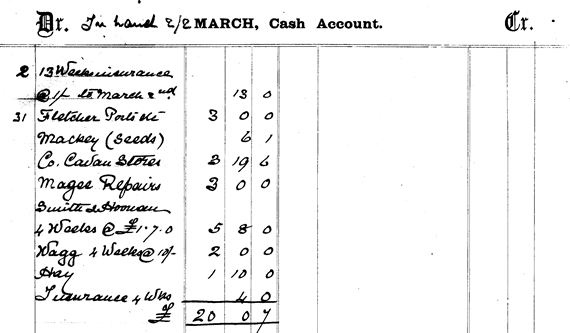 Dr. In hand 2/2 MARCH, Cash Account. Cr.
2 13 Weeks insurance
@ 1/- to March 2nd 13 0
31 Fletcher 3 0 0
Mackey (Seeds) 6 1
Co. Cavan Stores 3 19 6
Magee Repairs 3 0 0
Smith &
4 Weeks @ £1.7.0 5 8 0
Wagg 4 Weeks @ 10/- 2 0 0
Hay 1 10 0
Insurance 4 Wks 4 0
£ 20 0 7